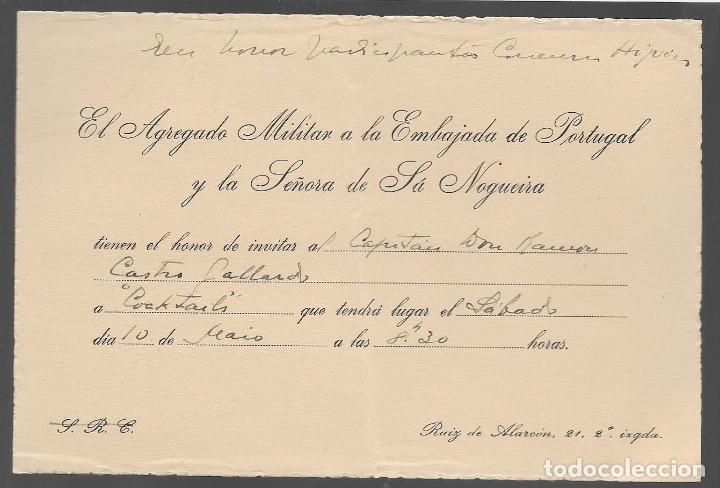 honor participantes Concurso Hípico
El Agregado Militar a la Embajada de Portugal
y la Señora de Sá Nogueira
tienen el honor de invitar al Capitán Don Ramon
Castro Gallardo
a "Cocktails" que tendrá lugar el Sábado
día 10 de Maio a las 8.30 horas.
S. R. C.
Ruiz de Alarcón, 21, 2º izqda.
todocoleccion.net